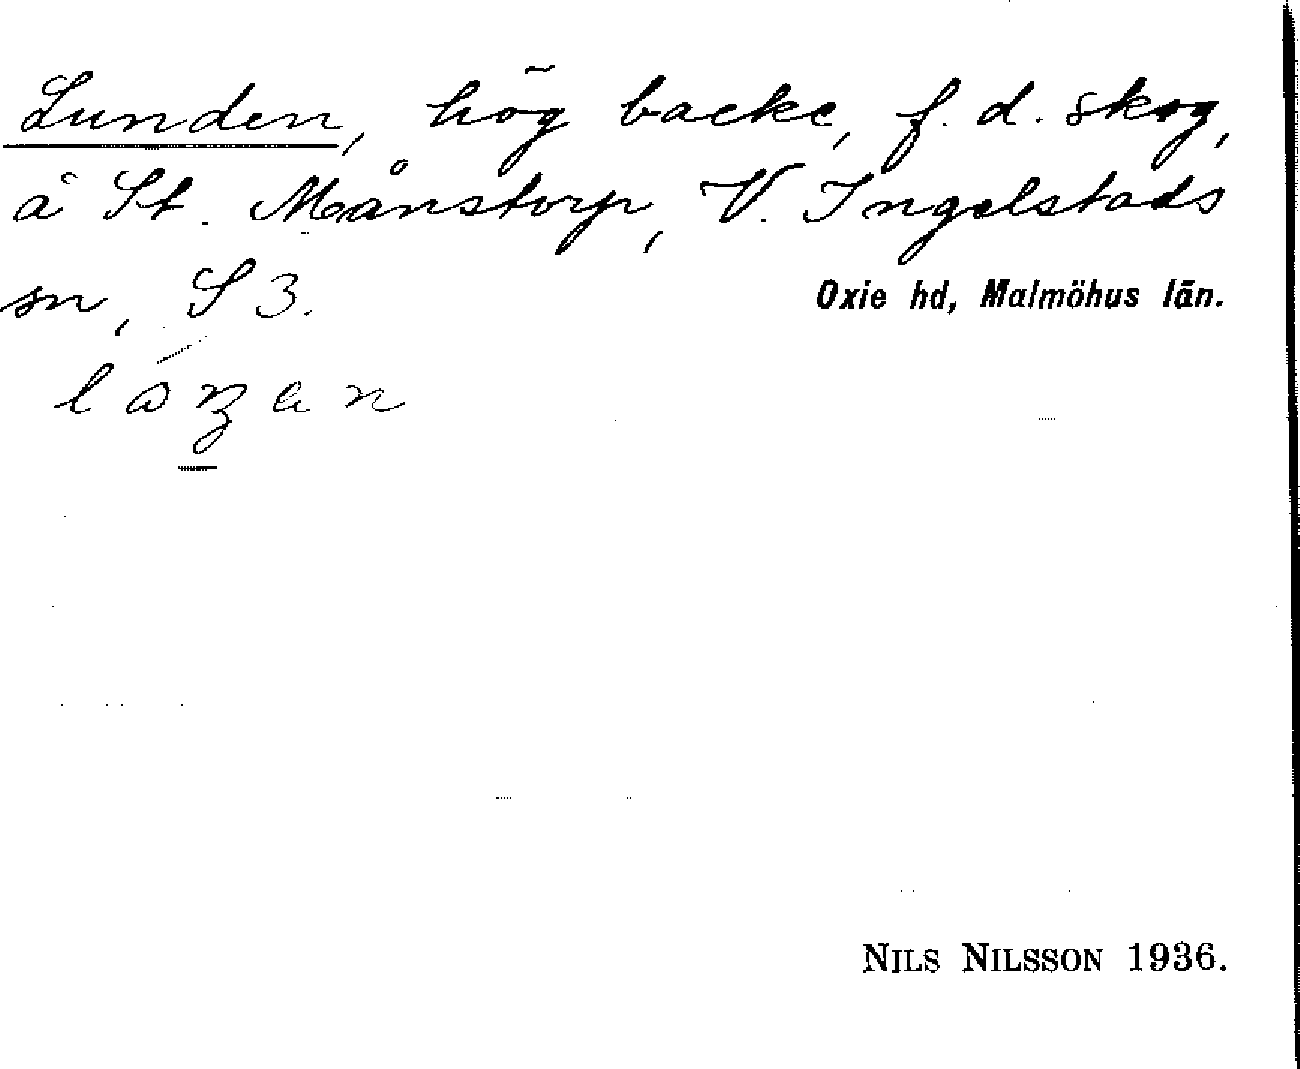 Lunden, hög backe, f. d. skog,
å St. Månstorp, V. Ingelstads
sn, S 3.
Oxie hd, Malmöhus län.
NILS NILSSON 1936.